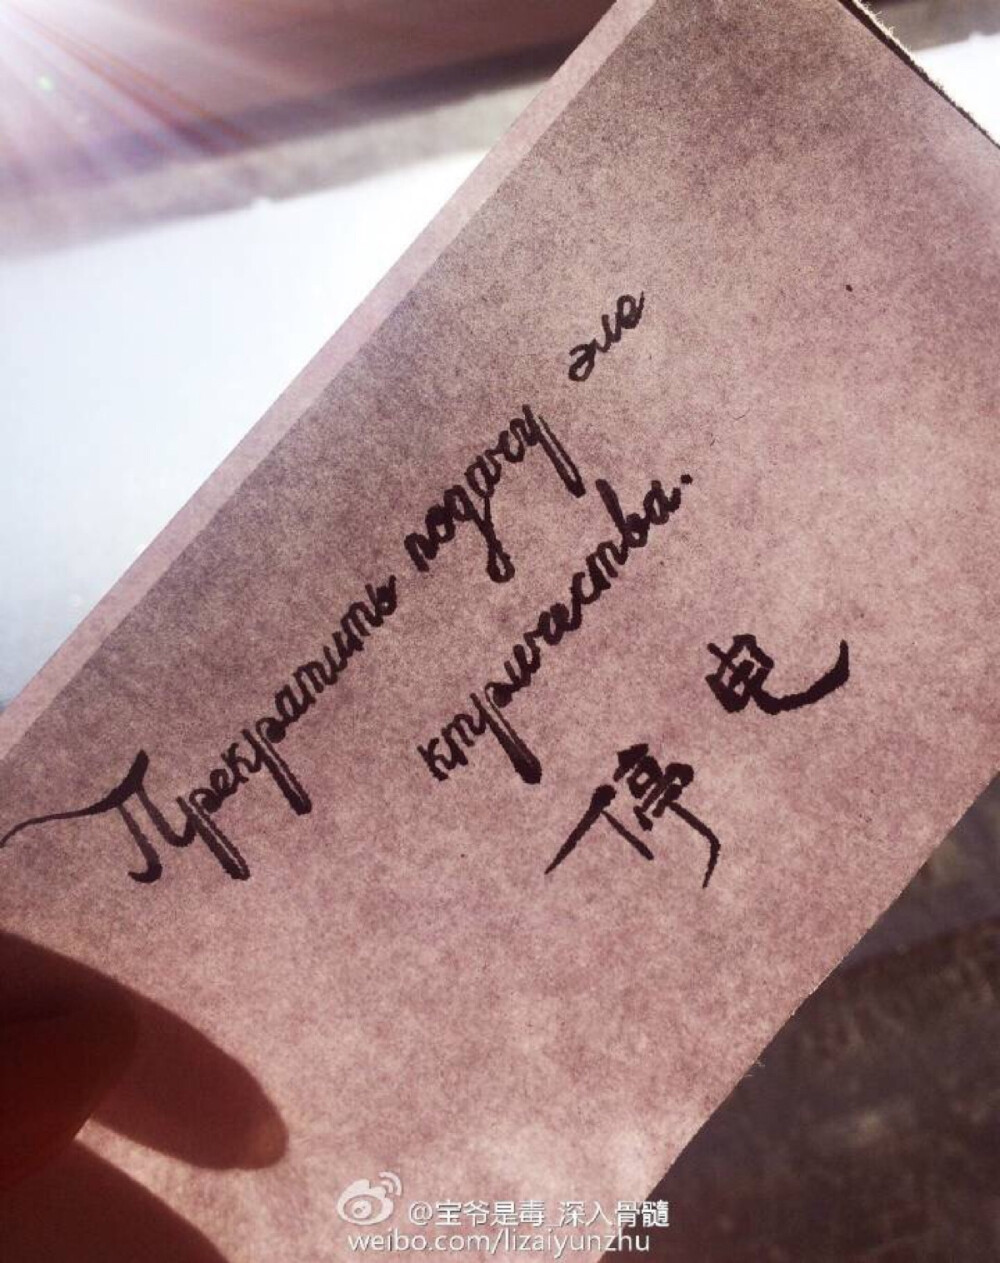 Прекратить подачу эле
ктричества.
停电
@宝爷是毒_深入骨髓
weibo.com/lizaiyunzhu